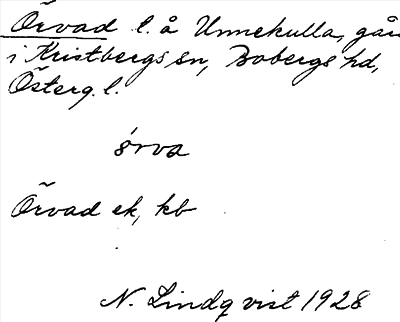 Örvad l. å Unnekulla, går
i Kristbergs sn, Bobergs hd,
Österg. l.
örva
Örvad ek, kb
N. Lindqvist 1928